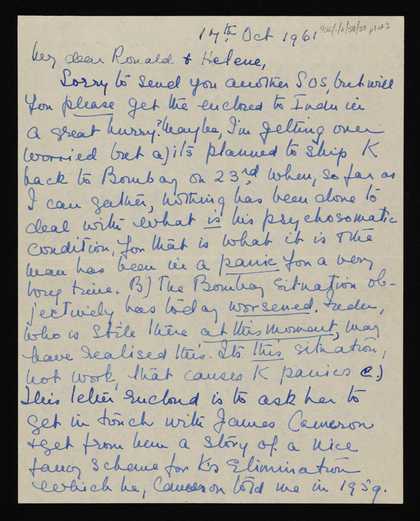 17th Oct 1961
My dear Ronald & Helene,
Sorry to send you another SOS, but will
you please get the enclosed to Indu in
a great hurry? Maybe, I'm getting over
worried but a) its planned to ship K
back to Bombay on 23rd when, so far as
I can gather, nothing has been done to
deal with what is his psychosomatic
condition, for that is what it is & the
man has been in a panic for a very
long time. B) The Bombay situation ob-
jectively has today worsened. Indu,
who is still there at this moment, may
have realised this. Its this situation,
not work, that causes K panics c)
This letter enclosed is to ask her to
get in touch with James Cameron
& get from him a story of a nice
fancy scheme for K's Elimination
which he, Cameron told me in 1959.